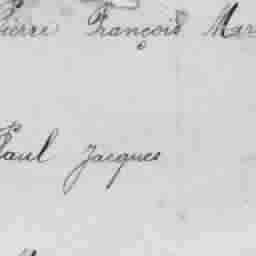 Pierre François Mar
Paul Jacques